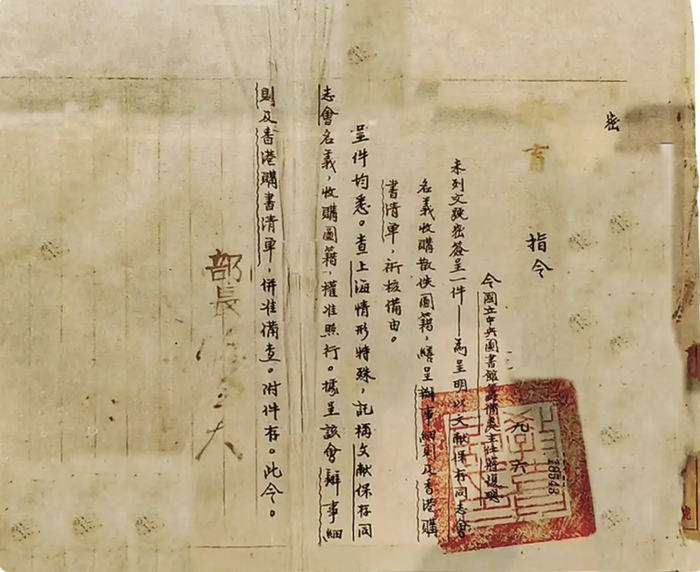 密
育
指令
令國立中央圖書館籌備處主任蔣復璁
九六
18543
未列文號密簽呈一件——為呈明以文献保存同志會
名義收購散佚圖籍，繕呈辦事細則及香港購
書清單，祈核備由。
呈件均悉。查上海情形特殊，託稱文献保存同
志會名義，收購圖籍，權准照行。據呈該會辦事細
則及香港購書清單，併准備查。附件存。此令。
部長陳立夫